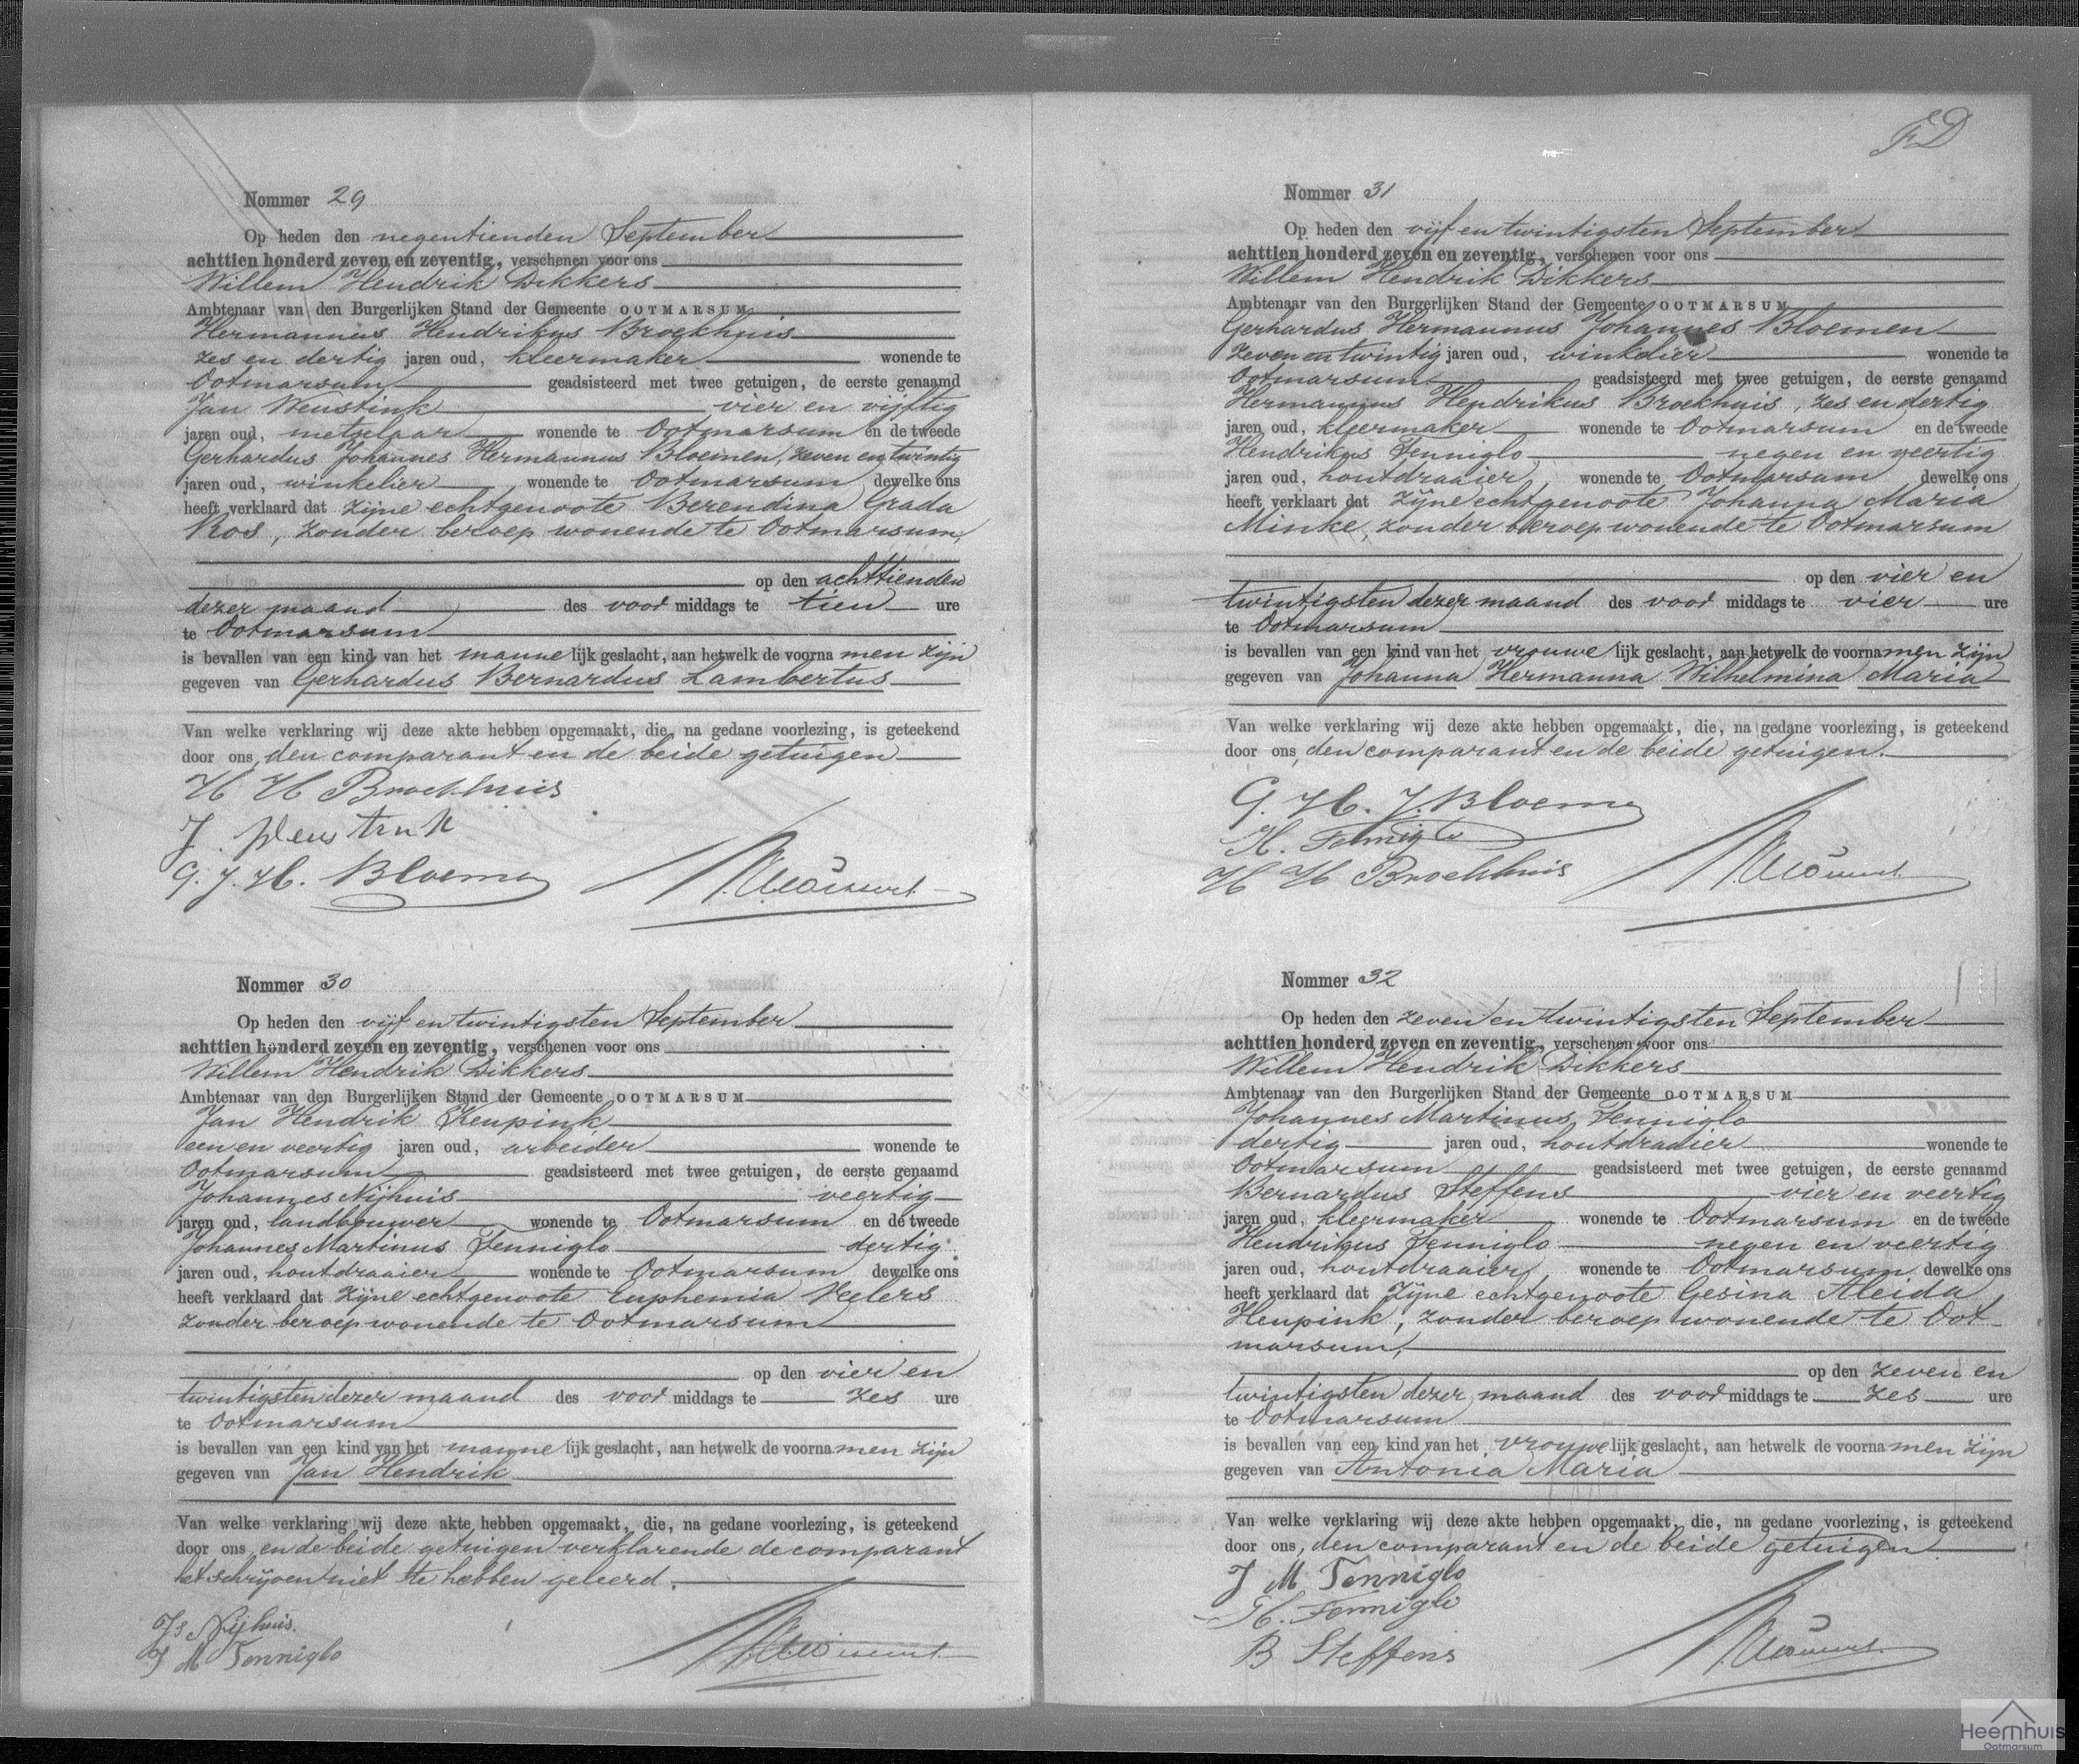 Nommer 29
Op heden den negentienden September
achttien honderd zeven en zeventig, verschenen voor ons
Willem Hendrik Dikkers
Ambtenaar van den Burgerlijken Stand der Gemeente OOTMARSUM
Hermannus Hendrikus Broekhuis
zes en dertig jaren oud, kleermaker wonende te
Ootmarsum geadsisteerd met twee getuigen, de eerste genaamd
Jan Weustink vier en vijftig
jaren oud, metselaar wonende te Ootmarsum en de tweede
Gerhardus Johannes Hermannus Bloemen, zeven en twintig
jaren oud, winkelier wonende te Ootmarsum dewelke ons
heeft verklaard dat zijne echtgenoote Berendina Grada
Ros, zonder beroep wonende te Ootmarsum,
op den achttienden
dezer maand des voor middags te tien ure
te Ootmarsum
is bevallen van een kind van het manne lijk geslacht, aan hetwelk de voorna men zijn
gegeven van Gerhardus Bernardus Lambertus
Van welke verklaring wij deze akte hebben opgemaakt, die, na gedane voorlezing, is geteekend
door ons, den comparant en de beide getuigen
H H Broekhuis
J. Weustink
G. J. H. Bloemen
Nommer 30
Op heden den vijf en twintigsten September
achttien honderd zeven en zeventig, verschenen voor ons
Willem Hendrik Dikkers
Ambtenaar van den Burgerlijken Stand der Gemeente OOTMARSUM
Jan Hendrik Keupink
een en veertig jaren oud, arbeider wonende te
Ootmarsum geadsisteerd met twee getuigen, de eerste genaamd
Johannes Nijhuis veertig
jaren oud, landbouwer wonende te Ootmarsum en de tweede
Johannes Martinus Tenniglo dertig
jaren oud, houtdraaier wonende te Ootmarsum dewelke ons
heeft verklaard dat zijne echtgenoote Euphemia Veelers
zonder beroep wonende te Ootmarsum
op den vier en
twintigsten dezer maand des voor middags te zes ure
te Ootmarsum
is bevallen van een kind van het manne lijk geslacht, aan hetwelk de voorna men zijn
gegeven van Jan Hendrik
Van welke verklaring wij deze akte hebben opgemaakt, die, na gedane voorlezing, is geteekend
door ons en de beide getuigen verklarende de comparant
het schrijven niet te hebben geleerd.
Js Nijhuis.
J M Tenniglo
FD
Nommer 31
Op heden den vijf en twintigsten September
achttien honderd zeven en zeventig, verschenen voor ons
Willem Hendrik Dikkers
Ambtenaar van den Burgerlijken Stand der Gemeente OOTMARSUM
Gerhardus Hermannus Johannes Bloemen
zeven en twintig jaren oud, winkelier wonende te
Ootmarsum geadsisteerd met twee getuigen, de eerste genaamd
Hermannus Hendrikus Broekhuis, zes en dertig
jaren oud, kleermaker wonende te Ootmarsum en de tweede
Hendrikus Tenniglo negen en veertig
jaren oud, houtdraaier wonende te Ootmarsum dewelke ons
heeft verklaart dat zijne echtgenoote Johanna Maria
Minke, zonder beroep wonende te Ootmarsum
op den vier en
twintigsten dezer maand des voor middags te vier ure
te Ootmarsum
is bevallen van een kind van het vrouwe lijk geslacht, aan hetwelk de voornamen zijn
gegeven van Johanna Hermanna Wilhelmina Maria
Van welke verklaring wij deze akte hebben opgemaakt, die, na gedane voorlezing, is geteekend
door ons, den comparant en de beide getuigen.
G. H. J. Bloemen
H. Tenniglo
H H Broekhuis
Nommer 32
Op heden den zeven en twintigsten September
achttien honderd zeven en zeventig, verschenen voor ons
Willem Hendrik Dikkers
Ambtenaar van den Burgerlijken Stand der Gemeente OOTMARSUM
Johannes Martinus Tenniglo
dertig jaren oud, houtdraaier wonende te
Ootmarsum geadsisteerd met twee getuigen, de eerste genaamd
Bernardus Steffens vier en veertig
jaren oud, kleermaker wonende te Ootmarsum en de tweede
Hendrikus Tenniglo negen en veertig
jaren oud, houtdraaier wonende te Ootmarsum dewelke ons
heeft verklaard dat zijne echtgenoote Gesina Aleida
Heupink, zonder beroep wonende te Oot-
marsum,
op den zeven en
twintigsten dezer maand des voor middags te zes ure
te Ootmarsum
is bevallen van een kind van het vrouwe lijk geslacht, aan hetwelk de voorna men zijn
gegeven van Antonia Maria
Van welke verklaring wij deze akte hebben opgemaakt, die, na gedane voorlezing, is geteekend
door ons, den comparant en de beide getuigen
J M Tenniglo
H. Tenniglo
B Steffens
Heemhuis
Ootmarsum